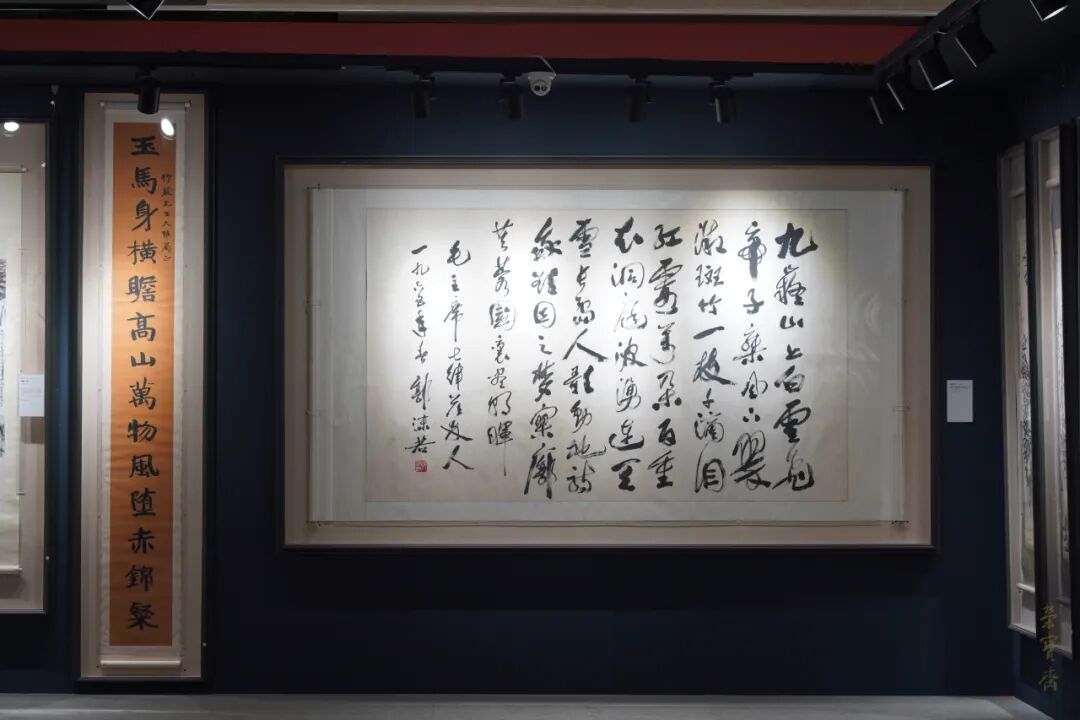 九嶷山上白雲飛
帝子乘風下翠
微斑竹一枝千滴泪
紅霞萬朵百重
衣洞庭波湧連天
雪長島人歌動地詩
我欲因之夢寥廓
芙蓉國裏盡朝暉
毛主席七律答友人
一九六五年春 郭沫若
玉馬身橫瞻高山萬物風堕赤錦粲
榮寶齋